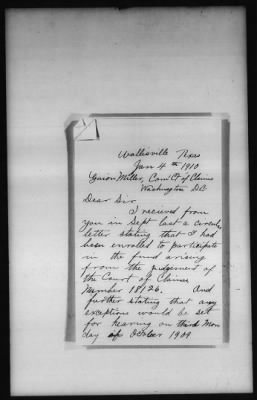 Wallisville Texas
Jan 4th 1910
Guion Miller, Com' Ct of Claims
Washington DC
Dear Sir
I recieved from
you in Sept last a circular
letter stating that I had
been enrolled to participate
in the fund arising
from the judgement of
the Court of Claims
Number 18126. And
further stating that any
exceptions would be set
for hearing on third Mon
day of October 1909